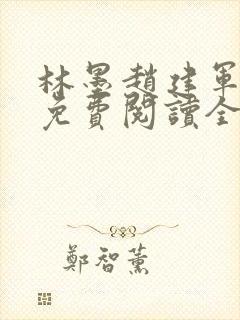 林墨趙建軍
免費閱讀全
鄭智薰